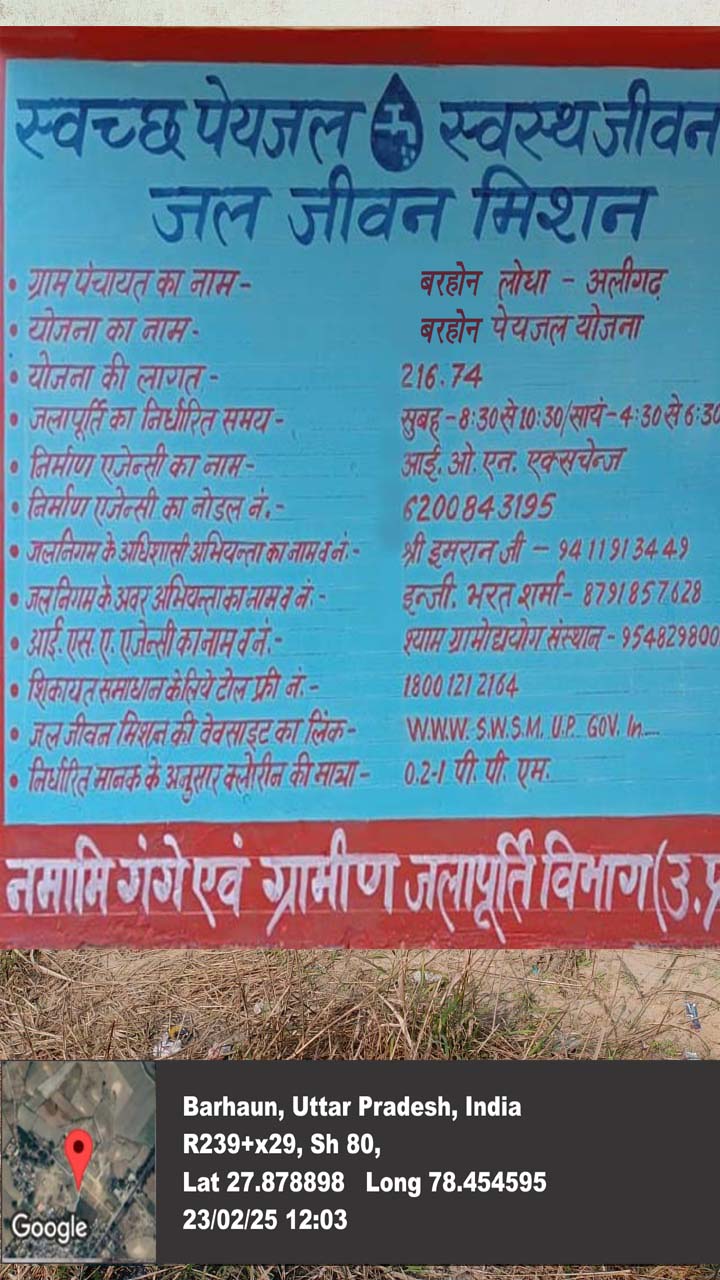 स्वच्छ पेयजल स्वस्थ जीवन
जल जीवन मिशन
• ग्राम पंचायत का नाम - बरहोन लोधा - अलीगढ़
• योजना का नाम - बरहोन पेयजल योजना
• योजना की लागत - 216.74
• जलापूर्ति का निर्धारित समय - सुबह - 8:30 से 10:30/सायं - 4:30 से 6:30
• निर्माण एजेन्सी का नाम - आई. ओ. एन. एक्सचेन्ज
• निर्माण एजेन्सी का नोडल नं. - 6200843195
• जलनिगम के अधिशासी अभियन्ता का नाम व नं. - श्री इमरान जी - 9411913449
• जलनिगम के अवर अभियन्ता का नाम व नं. - इन्जी. भरत शर्मा - 8791857628
• आई. एस. ए. एजेन्सी का नाम व नं. - श्याम ग्रामोद्ययोग संस्थान - 954829800
• शिकायत समाधान के लिये टोल फ्री नं. - 1800 121 2164
• जल जीवन मिशन की वेवसाइट का लिंक - W.W.W. S.W.S.M. U.P. GOV. In
• निर्धारित मानक के अनुसार क्लोरीन की मात्रा - 0.2-1 पी. पी. एम.
नमामि गंगे एवं ग्रामीण जलापूर्ति विभाग (उ.प्र
Barhaun, Uttar Pradesh, India
R239+x29, Sh 80,
Lat 27.878898 Long 78.454595
23/02/25 12:03
Google